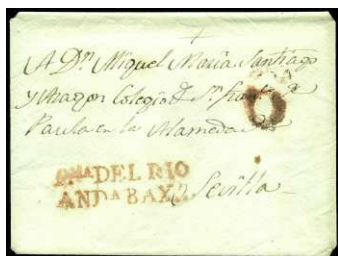 A Dn. Miguel Maria Santiago
y Colegio de Sn.
Paula en la Alameda
DEL RIO
ANDA BAXA
Sevilla